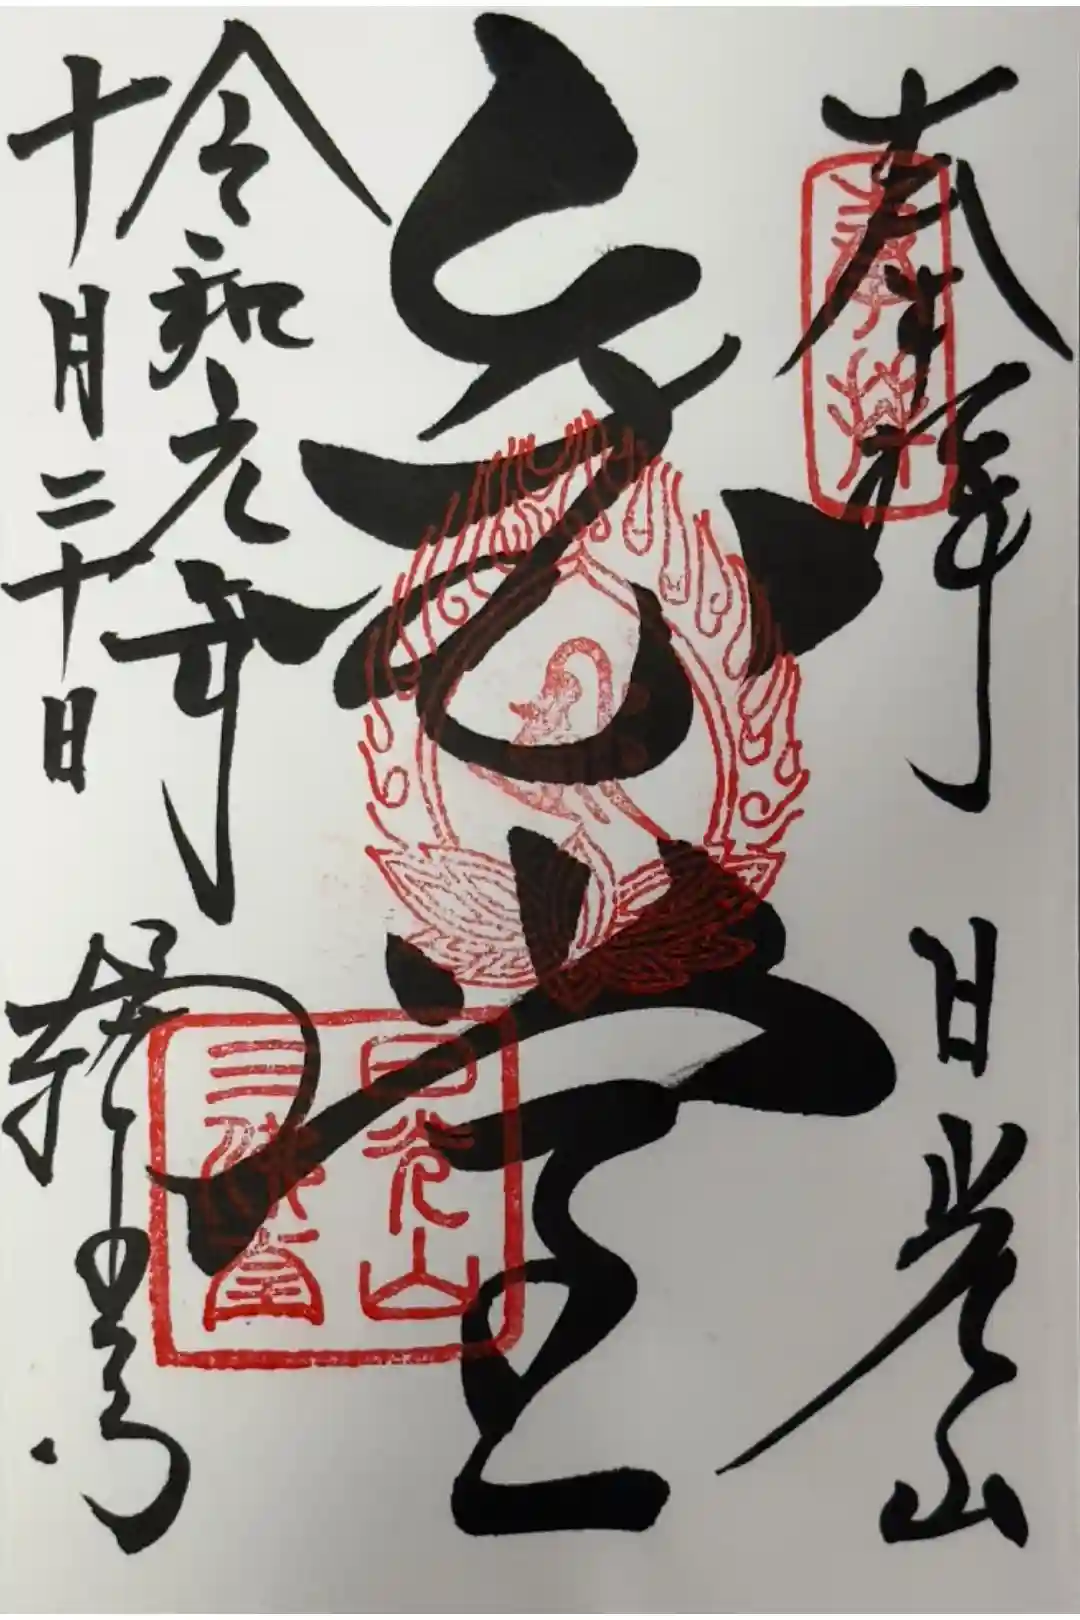 奉拝 日光山
奉拝
金堂
日光山
三佛堂
令和元年
十月二十日
輪王寺